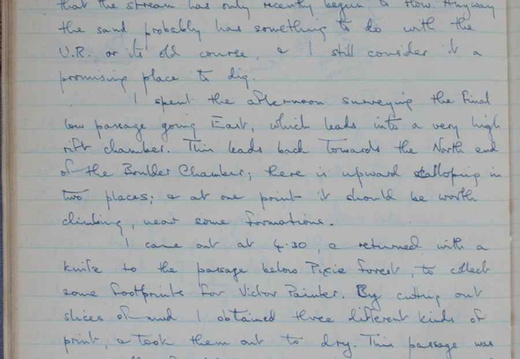 that the stream has only recently begun to flow. Anyway
the sand probably has something to do with the
U.R. or its old course, & I still consider it a
promising place to dig.
I spent the afternoon surveying the Final
low passage going East, which leads into a very high
rift chamber. This leads back towards the North end
of the Boulder Chamber; there is upward scalloping in
two places; & at one point it should be worth
climbing, near some formations.
I came out at 4.30, & returned with a
knife to the passage below Pixie Forest, to collect
some footprints for Victor Painter. By cutting out
slices of mud I obtained three different kinds of
print, & took them out to dry. This passage was